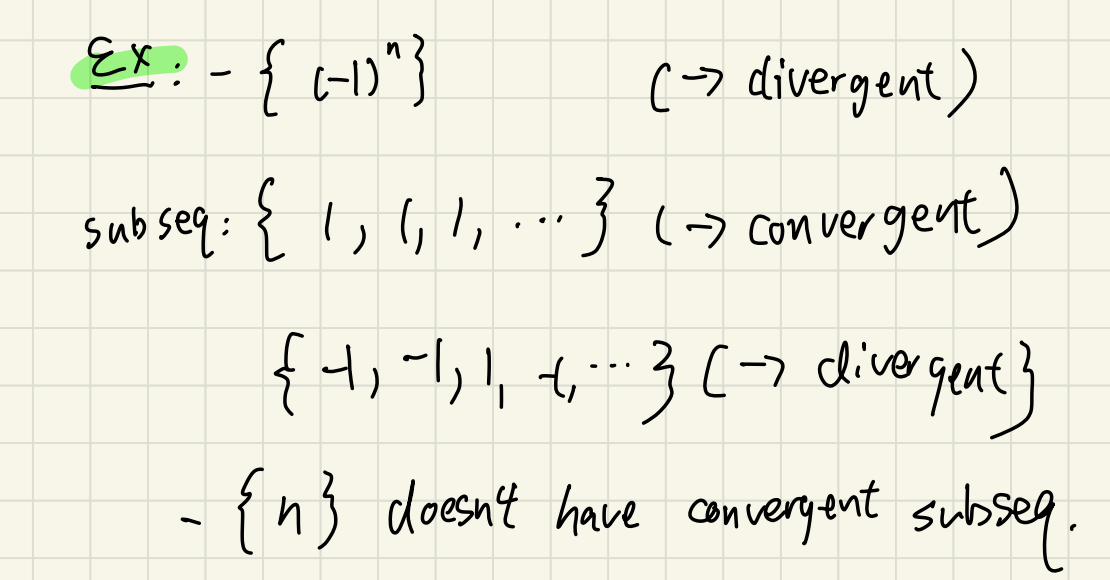 Ex: - { (-1)^n } (→ divergent)
subseq: { 1, 1, 1, ... } (→ convergent)
{ -1, -1, 1, -1, ... } (→ divergent}
- { n } doesn't have convergent subseq.